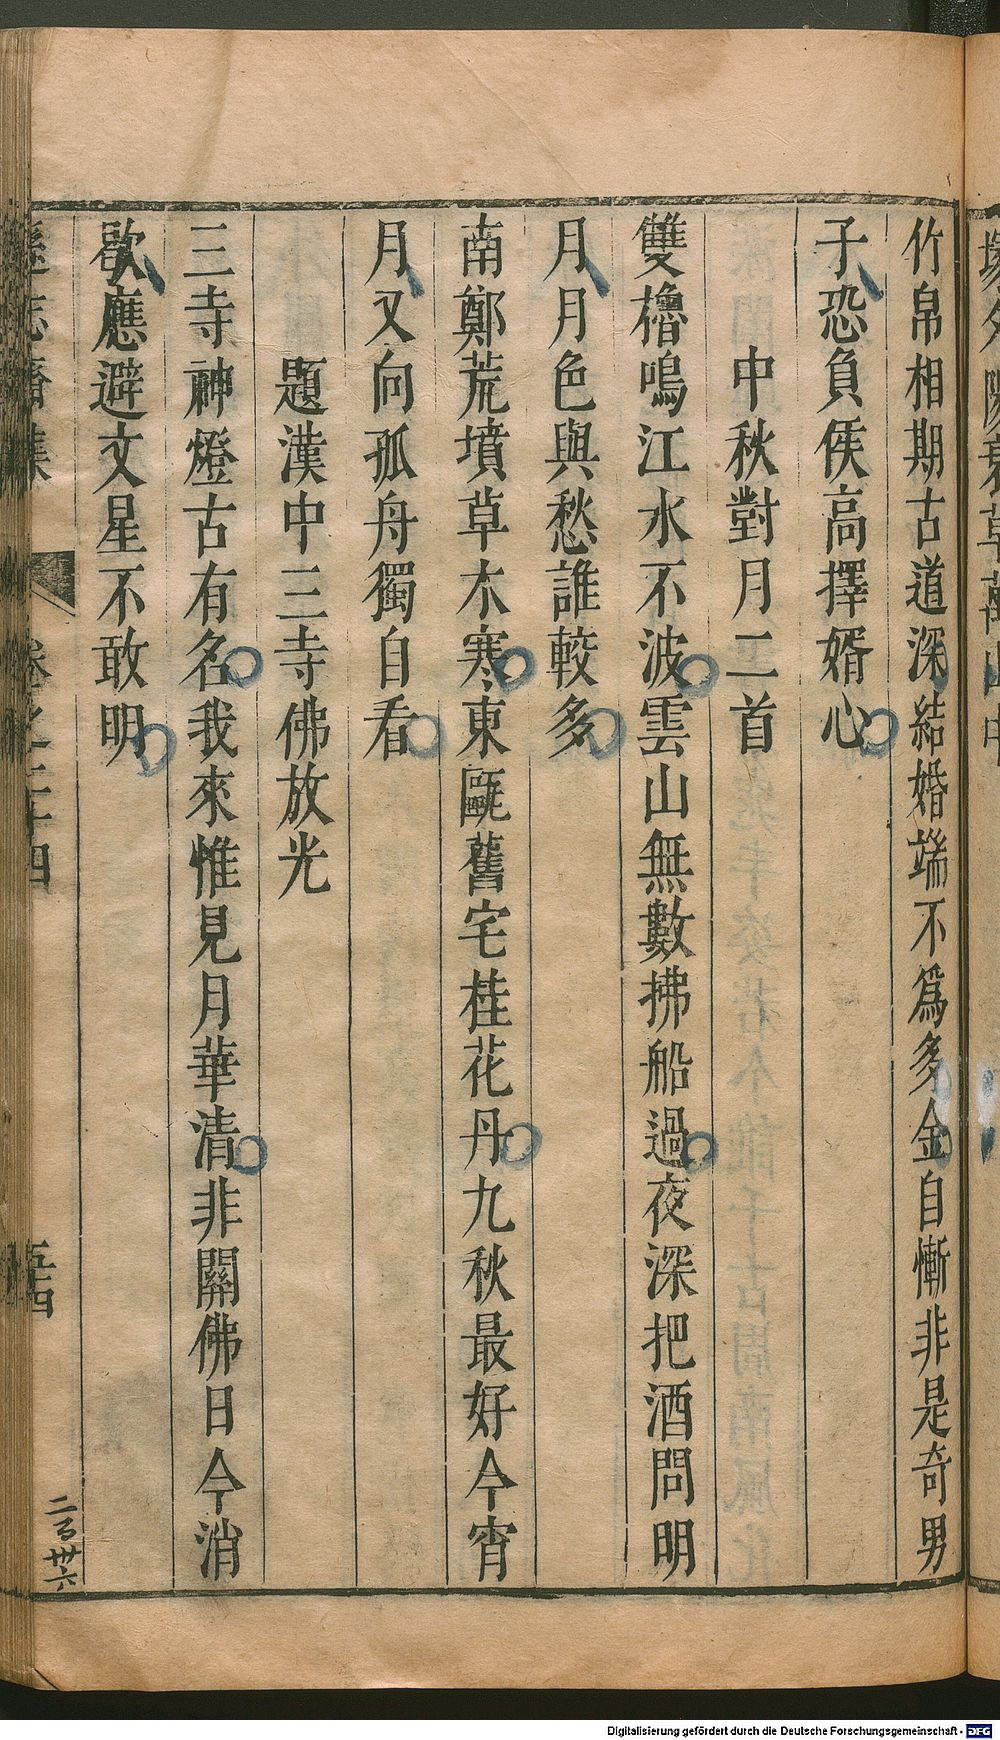 竹帛相期古道深結婚端不爲多金自慚非是奇男
子恐負侯高擇婿心
中秋對月二首
雙櫓鳴江水不波雲山無數拂船過夜深把酒問明
月月色與愁誰較多
南鄭荒墳草木寒東甌舊宅桂花丹九秋最好今宵
月又向孤舟獨自看
題漢中三寺佛放光
三寺神燈古有名我來惟見月華清非關佛日今消
歇應避文星不敢明
遜志齋集
卷之二十四
五四
二百卅六
Digitalisierung gefördert durch die Deutsche Forschungsgemeinschaft - DFG